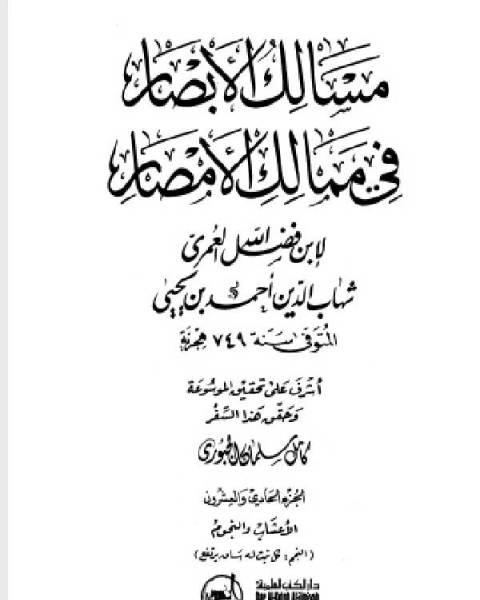 مَسَالِكُ الأَبْصَار
فِي مَمَالِكِ الأَمْصَار
لابن فضل الله العُمري
شهاب الدين أحمد بن يحيى
المتوفى سنة ٧٤٩ هجرية
أشرف على تحقيق الموسوعة
وحقّق هذا السِّفر
كامل سلمان الجبوري
الجزء الحادي والعشرون
الأعشاب والنجوم
(النجم: كل نبت له ساق يرتفع)
دار الكتب العلمية
Dar Al-Kotob Al-Ilmiyah